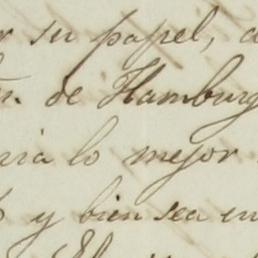 su papel,
de Hamburg
lo mejor
y bien sea en